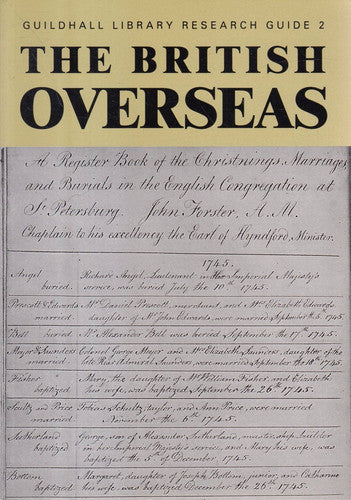 GUILDHALL LIBRARY RESEARCH GUIDE 2
THE BRITISH
OVERSEAS
A Register Book of the Christnings, Marriages
and Burials in the English Congregation at
St. Petersburg. John Forster, A. M.
Chaplain to his excellency the Earl of Hyndford, Minister.
1745.
Angel Richard Angel, Lieutenant in Her Imperial Majesty's
buried. service, was buried July the 10th 1745.
Prescott & Edwards Mr. Daniel Prescott, merchant, and Mrs. Elizabeth Edwards
married. daughter of Mr. John Edwards, were married September the 5th, 1745.
Bell Mr. Alexander Bell was buried September the 17th 1745.
buried.
Meyer & Saunders Colonel George Meyer and Mrs. Elizabeth Saunders, daughter of the
married. late Rear Admiral Saunders, were married September the 18th 1745.
Fisher Mary, the daughter of Mr. William Fisher, and Elizabeth
baptized. his wife, was baptized September the 26th 1745.
Scultz and Price Tobias Schultz, taylor, and Ann Price, were married
married. November the 6th 1745.
Sutherland George, son of Alexander Sutherland, master ship builder
baptized in her Imperial Majesty's service, and Mary his wife, was
baptized the 5th of December, 1745.
Bottom Margaret, daughter of Joseph Bottom, junior, and Catharine
baptized his wife, was baptized December the 26th 1745.